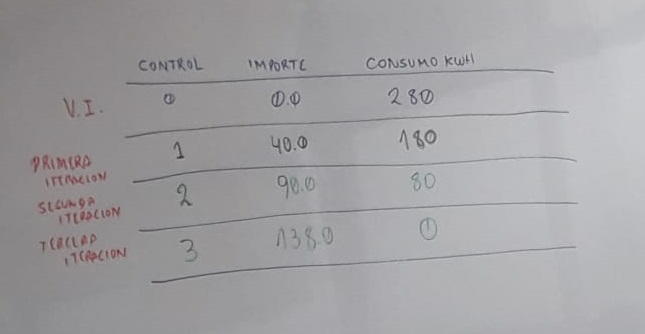 CONTROL IMPORTE CONSUMO KWH
V.I. 0 0.0 280
PRIMERA ITERACION 1 40.0 180
SEGUNDA ITERACION 2 90.0 80
TERCERA ITERACION 3 138.0 0